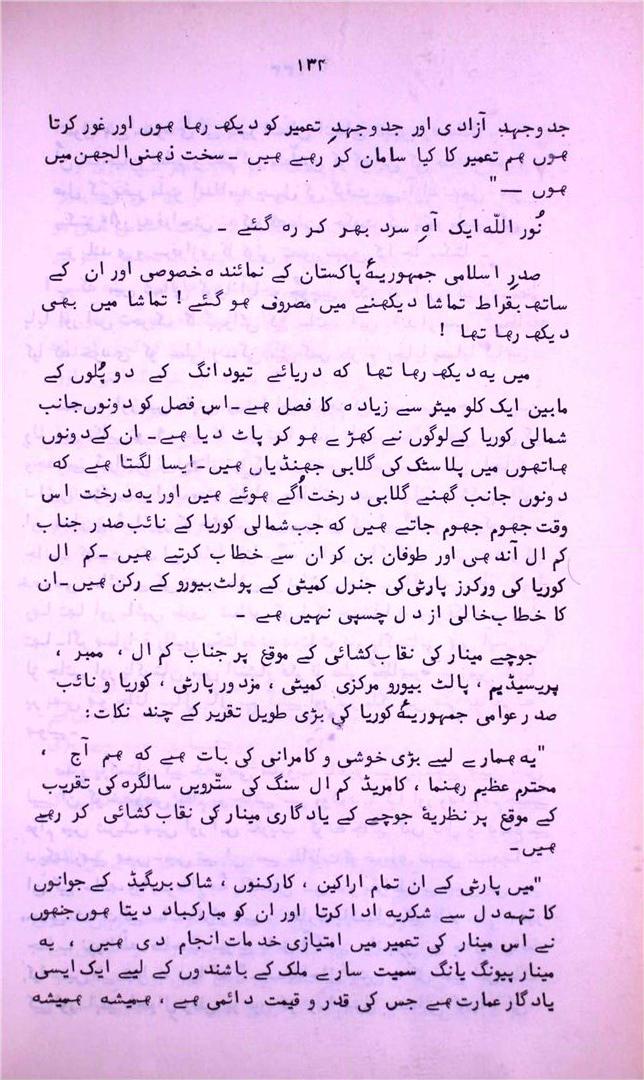 ۱۳۴
جدوجہدِ آزادی اور جدوجہدِ تعمیر کو دیکھ رہا ہوں اور غور کرتا
ہوں ہم تعمیر کا کیا سامان کر رہے ہیں ۔ سخت ذہنی الجھن میں
ہوں — "
نُور اللّٰہ ایک آہِ سرد بھر کر رہ گئے ۔
صدرِ اسلامی جمہوریۂ پاکستان کے نمائندہ خصوصی اور ان کے
ساتھ بقراط تماشا دیکھنے میں مصروف ہو گئے ! تماشا میں بھی
دیکھ رہا تھا !
میں یہ دیکھ رہا تھا کہ دریائے تیودانگ کے دو پُلوں کے
مابین ایک کلو میٹر سے زیادہ کا فصل ہے۔ اس فصل کو دونوں جانب
شمالی کوریا کے لوگوں نے کھڑے ہو کر پاٹ دیا ہے۔ ان کے دونوں
ہاتھوں میں پلاسٹک کی گلابی جھنڈیاں ہیں۔ ایسا لگتا ہے کہ
دونوں جانب گھنے گلابی درخت اُگے ہوئے ہیں اور یہ درخت اس
وقت جھوم جھوم جاتے ہیں کہ جب شمالی کوریا کے نائب صدر جناب
کم ال آندھی اور طوفان بن کر ان سے خطاب کرتے ہیں ۔ کم ال
کوریا کی ورکرز پارٹی کی جنرل کمیٹی کے پولٹ بیورو کے رکن ہیں۔ ان
کا خطاب خالی از دل چسپی نہیں ہے ۔
جوچے مینار کی نقاب کشائی کے موقع پر جناب کم ال ، ممبر ،
پریسیڈیم ، پالٹ بیورو مرکزی کمیٹی ، مزدور پارٹی ، کوریا و نائب
صدر عوامی جمہوریۂ کوریا کی بڑی طویل تقریر کے چند نکات :
"یہ ہمارے لیے بڑی خوشی و کامرانی کی بات ہے کہ ہم آج ،
محترم عظیم رہنما ، کامریڈ کم ال سنگ کی ستّرویں سالگرہ کی تقریب
کے موقع پر نظریۂ جوچے کے یادگاری مینار کی نقاب کشائی کر رہے
ہیں۔
"میں پارٹی کے ان تمام اراکین ، کارکنوں ، شاک بریگیڈ کے جوانوں
کا تہہ دل سے شکریہ ادا کرتا اور ان کو مبارکباد دیتا ہوں جنھوں
نے اس مینار کی تعمیر میں امتیازی خدمات انجام دی ہیں ، یہ
مینار پیونگ یانگ سمیت سارے ملک کے باشندوں کے لیے ایک ایسی
یادگار عمارت ہے جس کی قدر و قیمت دائمی ہے ، ہمیشہ ہمیشہ